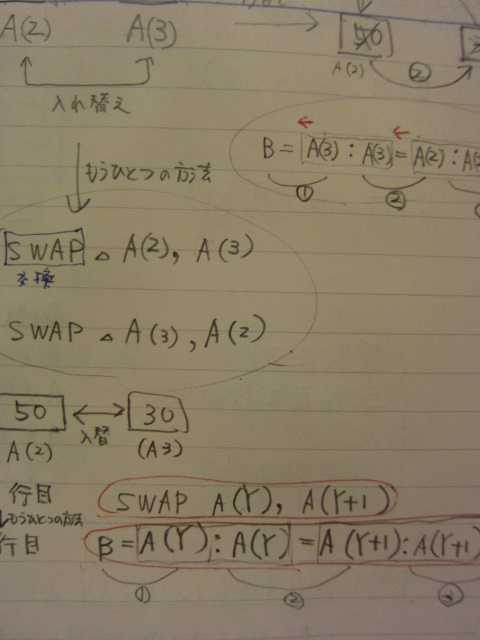 A(2) A(3)
50
A(2) ②
入れ替え
B = A(3) : A(3) = A(2) :
① ②
もうひとつの方法
SWAP △ A(2), A(3)
交換
SWAP △ A(3), A(2)
50 ⟷ 30
入替
A(2) (A3)
行目 SWAP A(Y), A(Y+1)
もうひとつの方法
行目 B = A(Y) : A(Y) = A(Y+1) : A(Y+1)
① ② ③